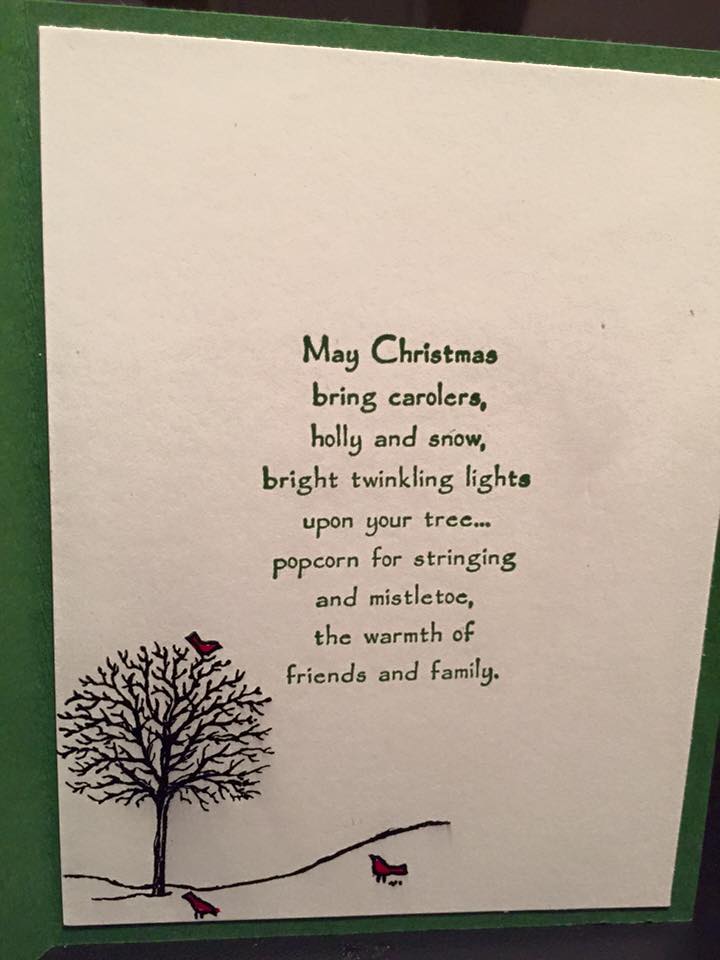 May Christmas
bring carolers,
holly and snow,
bright twinkling lights
upon your tree...
popcorn for stringing
and mistletoe,
the warmth of
friends and family.